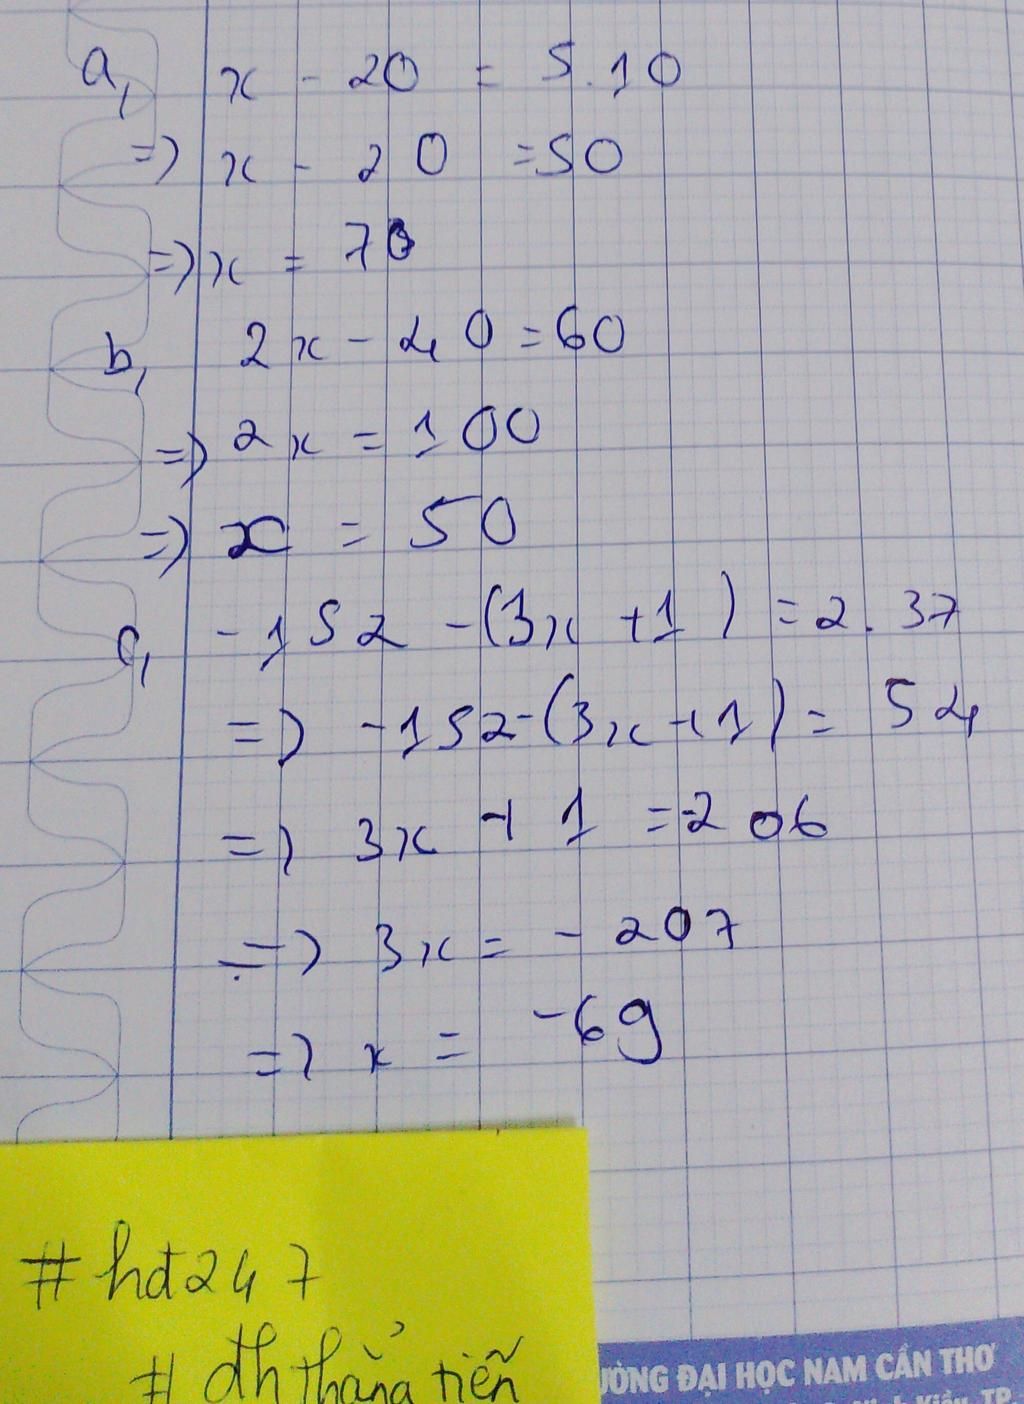 a, x - 20 = 5.10
=> x - 20 = 50
=> x = 70
b, 2x - 40 = 60
=> 2x = 100
=> x = 50
c, -152 - (3x + 1) = 2.37
=> -152 - (3x + 1) = 54
=> 3x + 1 = -206
=> 3x = -207
=> x = -69
#hđ247
# đh thẳng tiến
ƯỜNG ĐẠI HỌC NAM CẦN THƠ